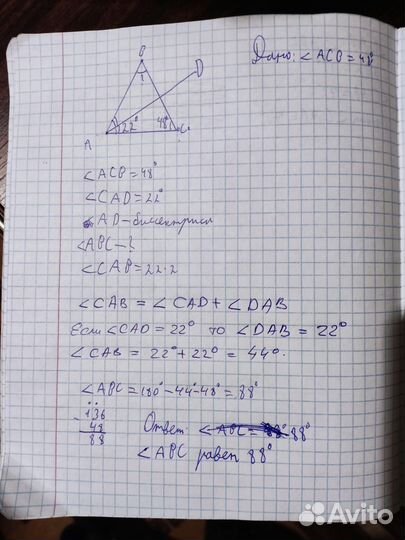 Дано: ∠ACB = 48°
B
D
?
22°
48°
A
C
∠ACB = 48°
∠CAD = 22°
AD - биссектриса
∠ABC - ?
∠CAB = 22·2
∠CAB = ∠CAD + ∠DAB
Если ∠CAD = 22° то ∠DAB = 22°
∠CAB = 22° + 22° = 44°.
∠ABC = 180° - 44° - 48° = 88°
- 136
48
88
Ответ: ∠ABC = 88° 88°
∠ABC равен 88°
Avito